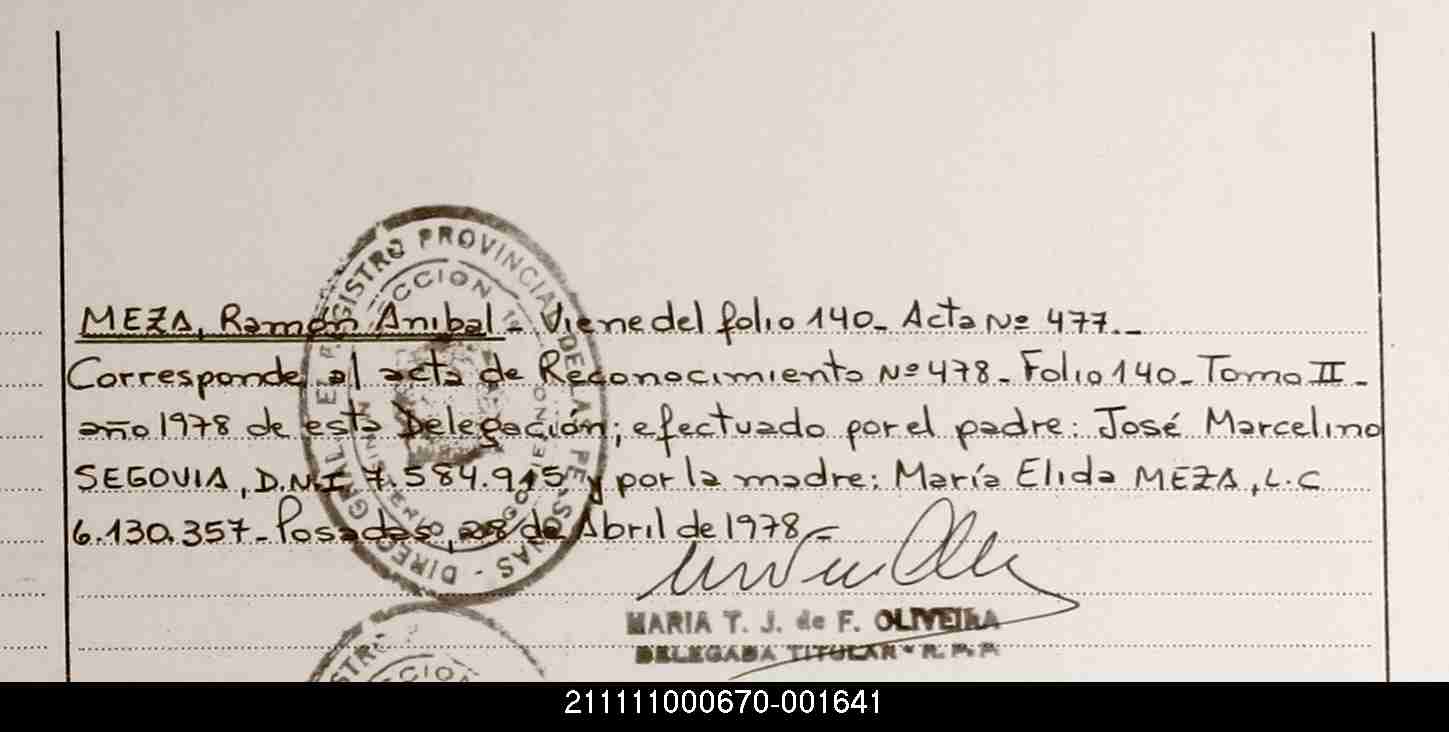 MEZA, Ramón Anibal - Viene del folio 140 - Acta Nº 477. -
Corresponde al acta de Reconocimiento Nº 478 - Folio 140 - Tomo II -
año 1978 de esta Delegación; efectuado por el padre: José Marcelino
SEGOVIA, D.N.I 7.584.915 y por la madre: María Elida MEZA, L.C
6.130.357 - Posadas, 28 de Abril de 1978 -
REGISTRO PROVINCIAL DE LAS PERSONAS - DIREC. GRAL.
MARIA T. J. de F. OLIVEIRA
DELEGADA TITULAR - R. P. P.
211111000670-001641